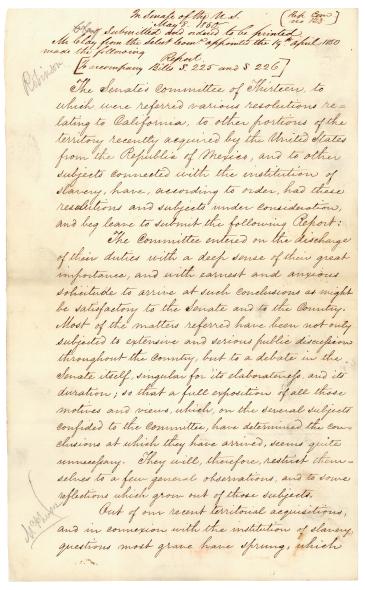 In Senate of the U.S.
May 8. 1850.
Submitted and ordered to be printed
Mr Clay from the Select Comee appointed the 19th April 1850
made the following
Report.
[To accompany Bills S. 225 and S 226]
Robinson
The Senate's Committee of Thirteen, to
which were referred various resolutions re-
lating to California, to other portions of the
territory recently acquired by the United States
from the Republic of Mexico, and to other
subjects connected with the institution of
slavery, have, according to order, had these
resolutions and subjects under consideration,
and beg leave to submit the following Report:
The Committee entered on the discharge
of their duties with a deep sense of their great
importance, and with earnest and anxious
solicitude to arrive at such conclusions as might
be satisfactory to the Senate and to the Country.
Most of the matters referred have been not only
subjected to extensive and serious public discussion
throughout the Country, but to a debate in the
Senate itself, singular for its elaborateness, and its
duration; so that a full exposition of all those
motives and views, which, on the several subjects
confided to the Committee, have determined the con-
clusions at which they have arrived, seems quite
unnecessary. They will, therefore, restrict them-
selves to a few general observations, and to some
reflections which grow out of those subjects.
Out of our recent territorial acquisitions,
and in connexion with the institution of slavery,
questions most grave have sprung, which